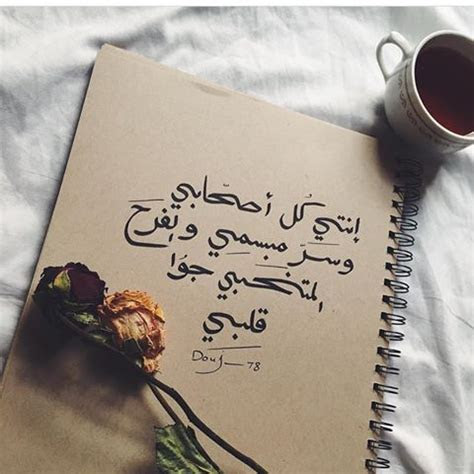 إنتي كُل أصحّابي
وسرّ مبسمِي والفرحَ
المتخَبي جوّا
قلبي